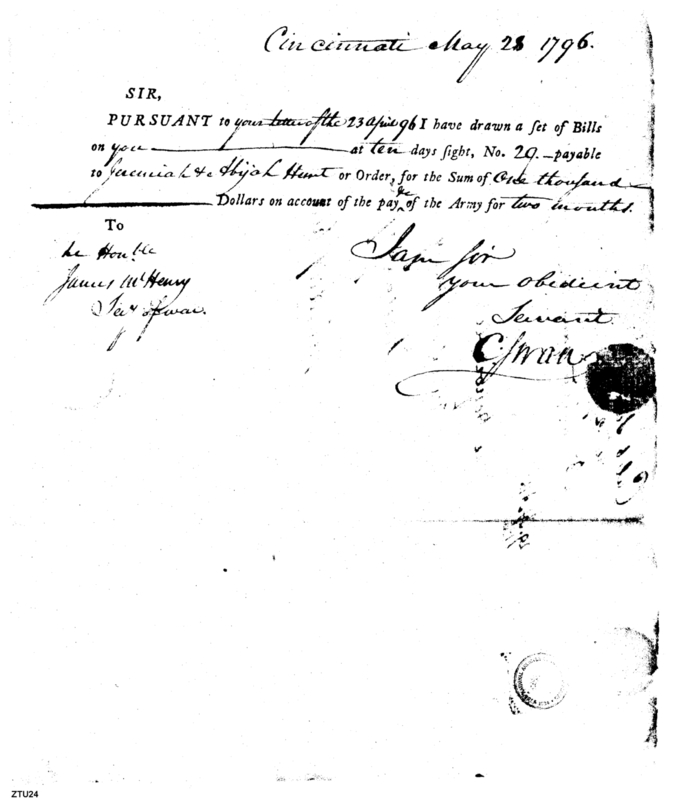 Cincinnati May 28 1796.
SIR,
PURSUANT to your letter of the 23 April 96 I have drawn a set of Bills
on you at ten days sight, No. 29. payable
to Jeremiah & Abijah Hunt or Order, for the Sum of One thousand
Dollars on account of the pay &c of the Army for two months.
To
he Honble
James McHenry
Secy of war.
I am Sir
your obedient
Servant
C Swan
ZTU24